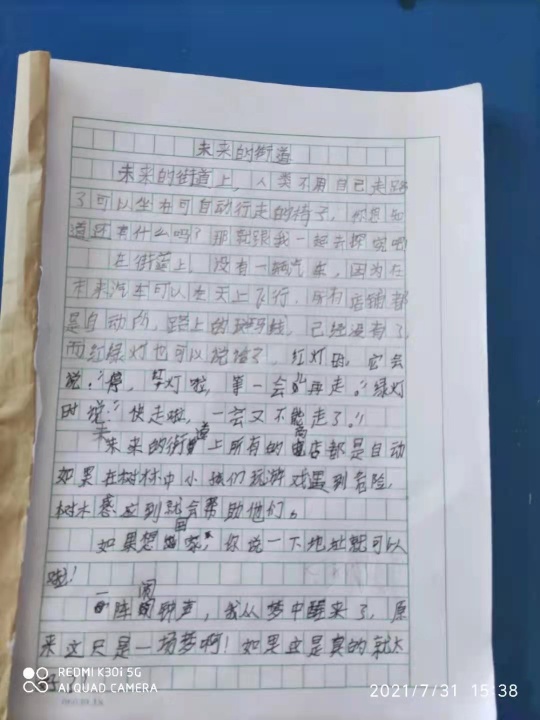 未来的街道
未来的街道上，人类不用自己走路
了可以坐在可自动行走的椅子，你想知
道还有什么吗？那就跟我一起去探究吧
在街道上，没有一辆汽车，因为在
未来汽车可以在天上飞行，所有店铺都
是自动所，路上的斑马线，已经没有了，
而红绿灯也可以说话了，红灯时，它会
说：“停，灯啦，等一会儿再走。”绿灯
时说：“快走啦，一会又不能走了。”
未来的街道上所有的商店都是自动
如果在树林中小孩们玩游戏遇到危险，
树木感应到就会帮助他们。
如果想回家，你说一下地址就可以
啦！
一阵闹钟声，我从梦中醒来了，原
来这只是一场梦啊！如果这是真的就太
REDMI K30i 5G
AI QUAD CAMERA
2021/7/31 15:38